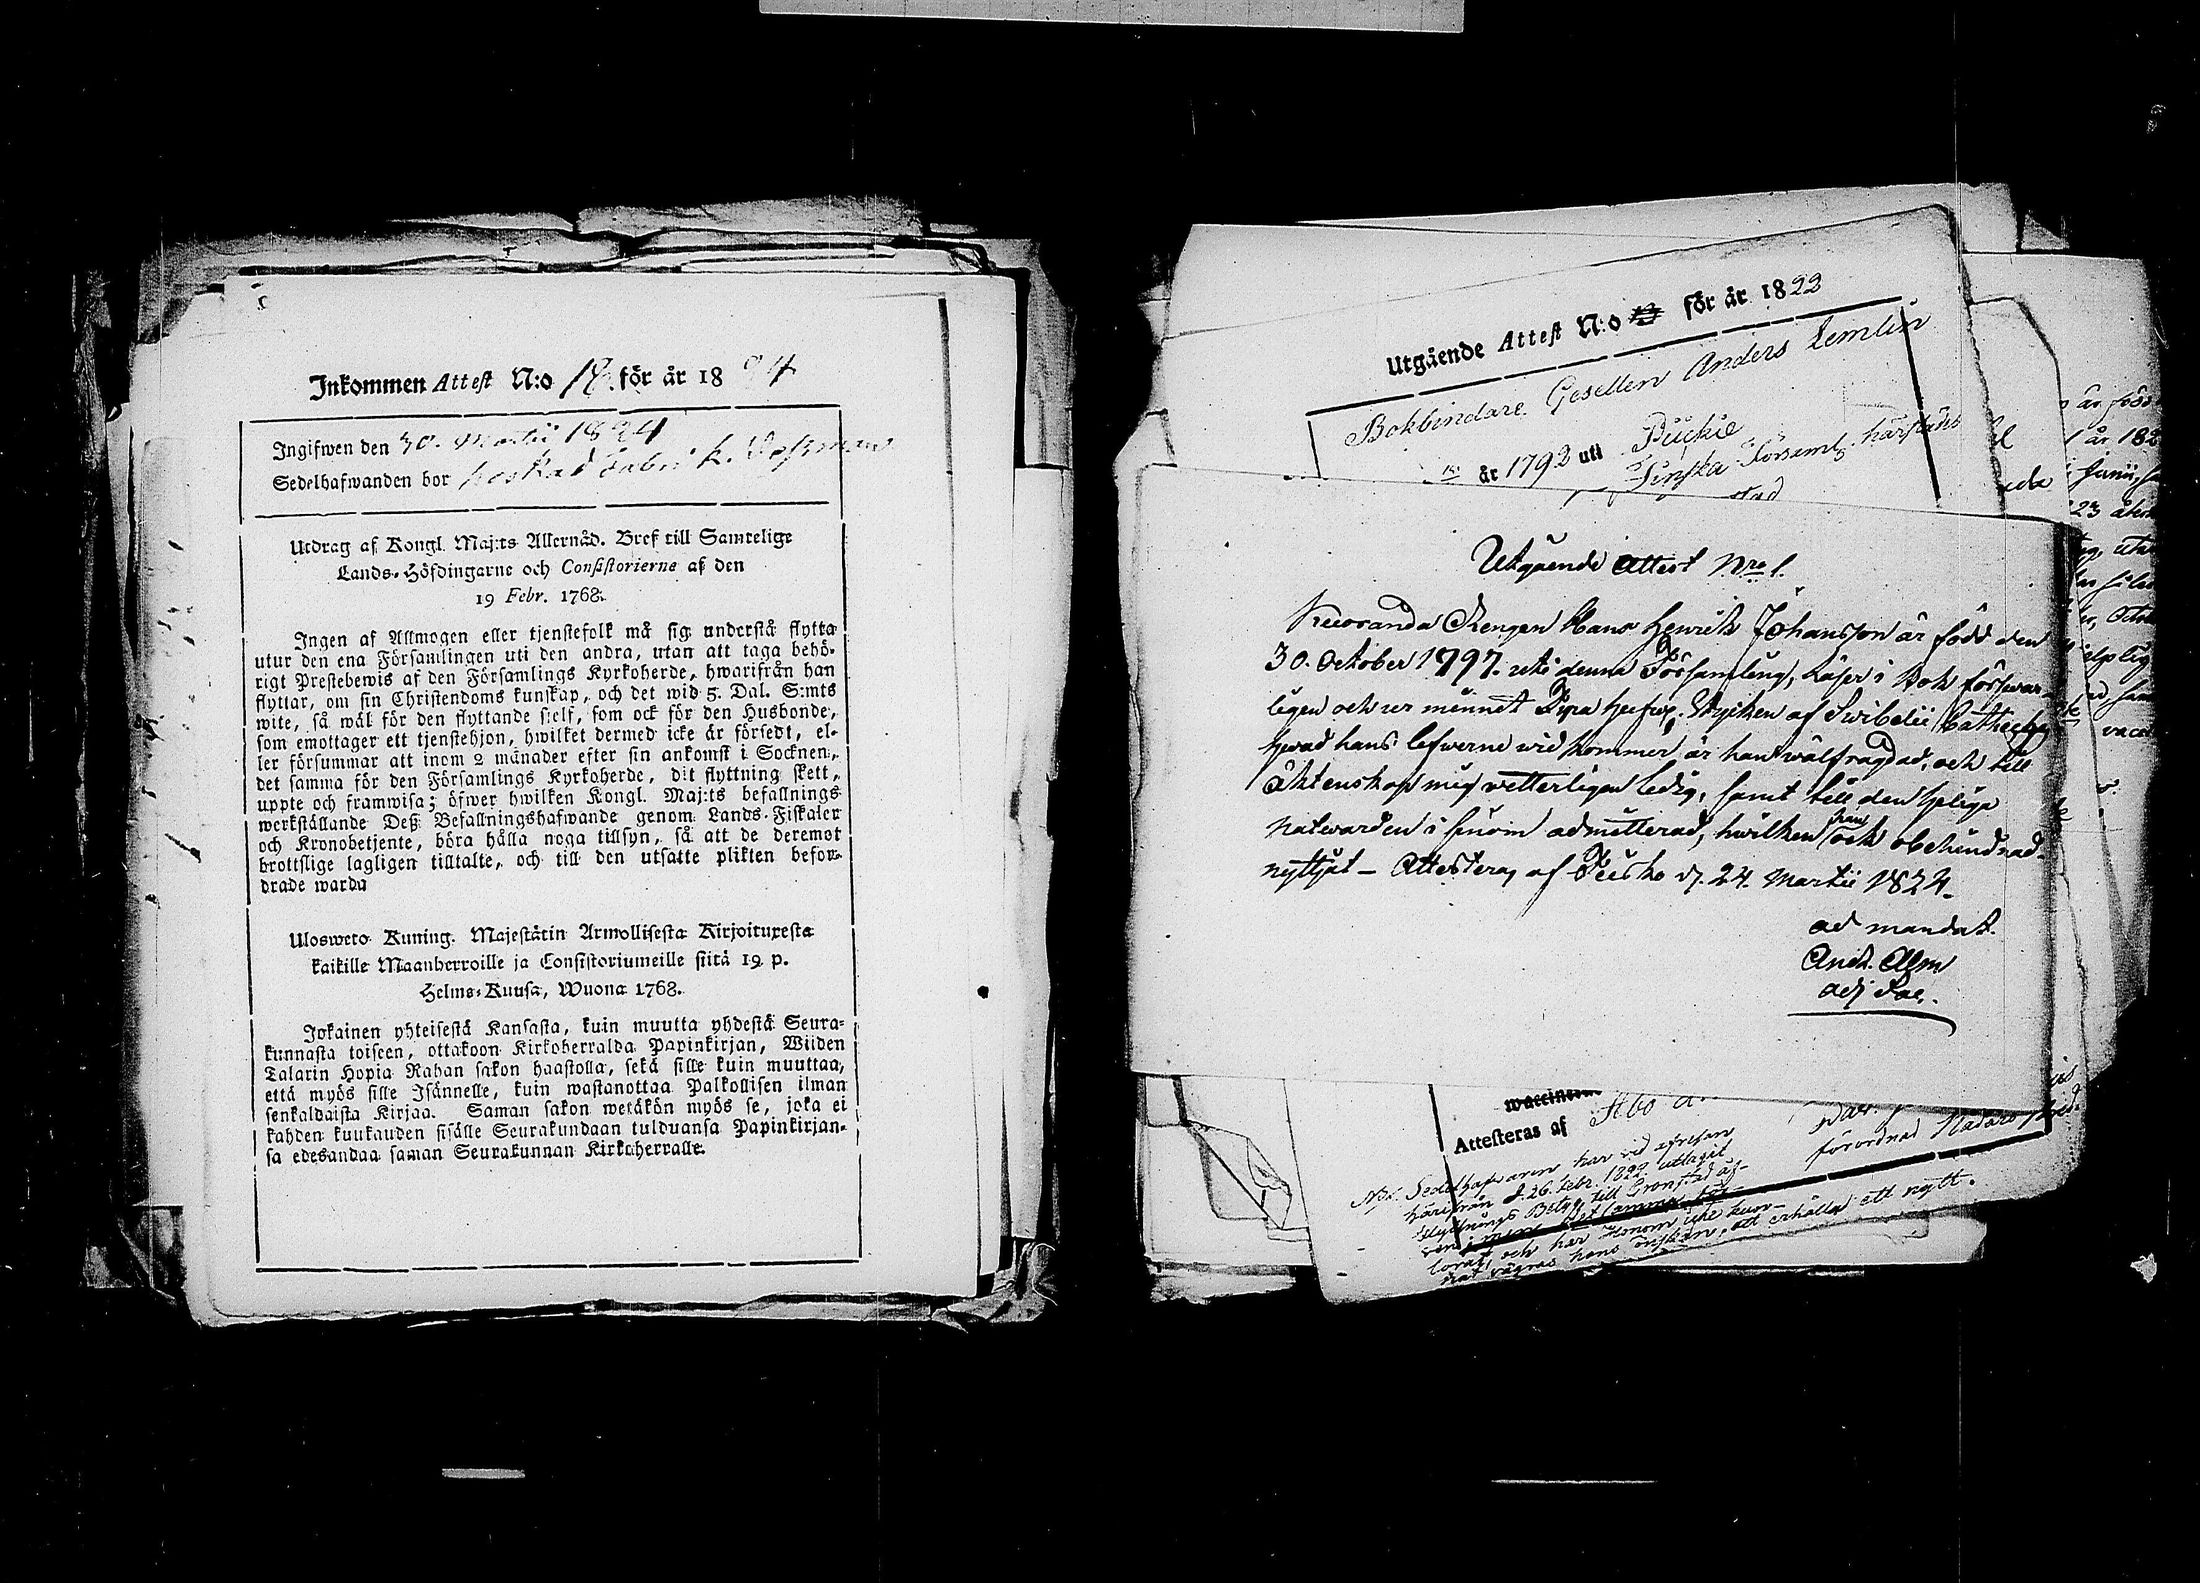 Inkommen Attest N:o 18. för år 1824
Ingifwen den 30. Martii 1824
Sedelhafwanden bor hos Rad Fabrik.
Utdrag af Kongl. Maj:ts Allernåd. Bref till Samtelige
Lands-Höfdingarne och Consistorierne af den
19 Febr. 1768.
Ingen af Allmogen eller tjenstefolk må sig understå flytta
utur den ena Församlingen uti den andra, utan att taga behö-
rigt Prestebewis af den Församlings Kyrkoherde, hwarifrån han
flyttar, om sin Christendoms kunskap, och det wid 5. Dal. S:mts
wite, så wäl för den flyttande sielf, som ock för den Husbonde,
som emottager ett tjenstehjon, hwilket dermed icke är försedt, el-
ler försummar att inom 2 månader efter sin ankomst i Socknen,
det samma för den Församlings Kyrkoherde, dit flyttning skett,
uppte och framwisa; öfwer hwilken Kongl. Maj:ts befallnings
werkställande Deß Befallningshafwande genom Lands-Fiskaler
och Kronobetjente, böra hålla noga tillsyn, så att de deremot
brottslige lagligen tilltalte, och till den utsatte plikten befor-
drade warda
Ulosweto Kuning. Majestätin Armollisesta Kirjoituxesta
kaikille Maanherroille ja Consistoriumeille siitä 19 p.
Helme-Kuusa, Wuona 1768.
Jokainen yhteisestä Kansasta, kuin muutta yhdestä Seura-
kunnasta toiseen, ottakoon Kirkoherralda Papinkirjan, Wiiden
Talarin Hopia Rahan sakon haastolla, sekä sille kuin muuttaa,
että myös sille Isännelle, kuin wastanottaa Palkollisen ilman
senkaldaista Kirjaa. Saman sakon wetäkön myös se, joka ei
kahden kuukauden sisälle Seurakundaan tulduansa Papinkirjan-
sa edesandaa saman Seurakunnan Kirkoherralle.
Utgående Attest N:o för år 1822
Bokbindare Gesellen Anders Lemlin
år 1792 uti Pückie
Finska Församl: härstäds
Utgående Attest Nro 1.
Drengen Hans Henrik Johansson är född den
30. October 1797. uti denna Församling, läser i bok förswar-
ligen och ur minnet Stycken af Swibelii Catheches
hwad hans lefwerne wid kommer är han wälfrägdad, och till
äktenskap mig vetterligen ledig, samt till den heliga
natwarden i admitterad, hwilken han ock obehindrad
nyttjat - Attesteras af Pusko d. 24. Martii 1824.
ad mandat.
And. Alm
adj Sac.
Attesteras af Åbo
förordnad
NB. Sedelhafwaren har wid afresan
härifrån d. 26. Febr. 1822 uttagit
Flyttnings Betyg till
och har Honom icke kun-
nat wägras hans önskan, att erhålla ett nytt.